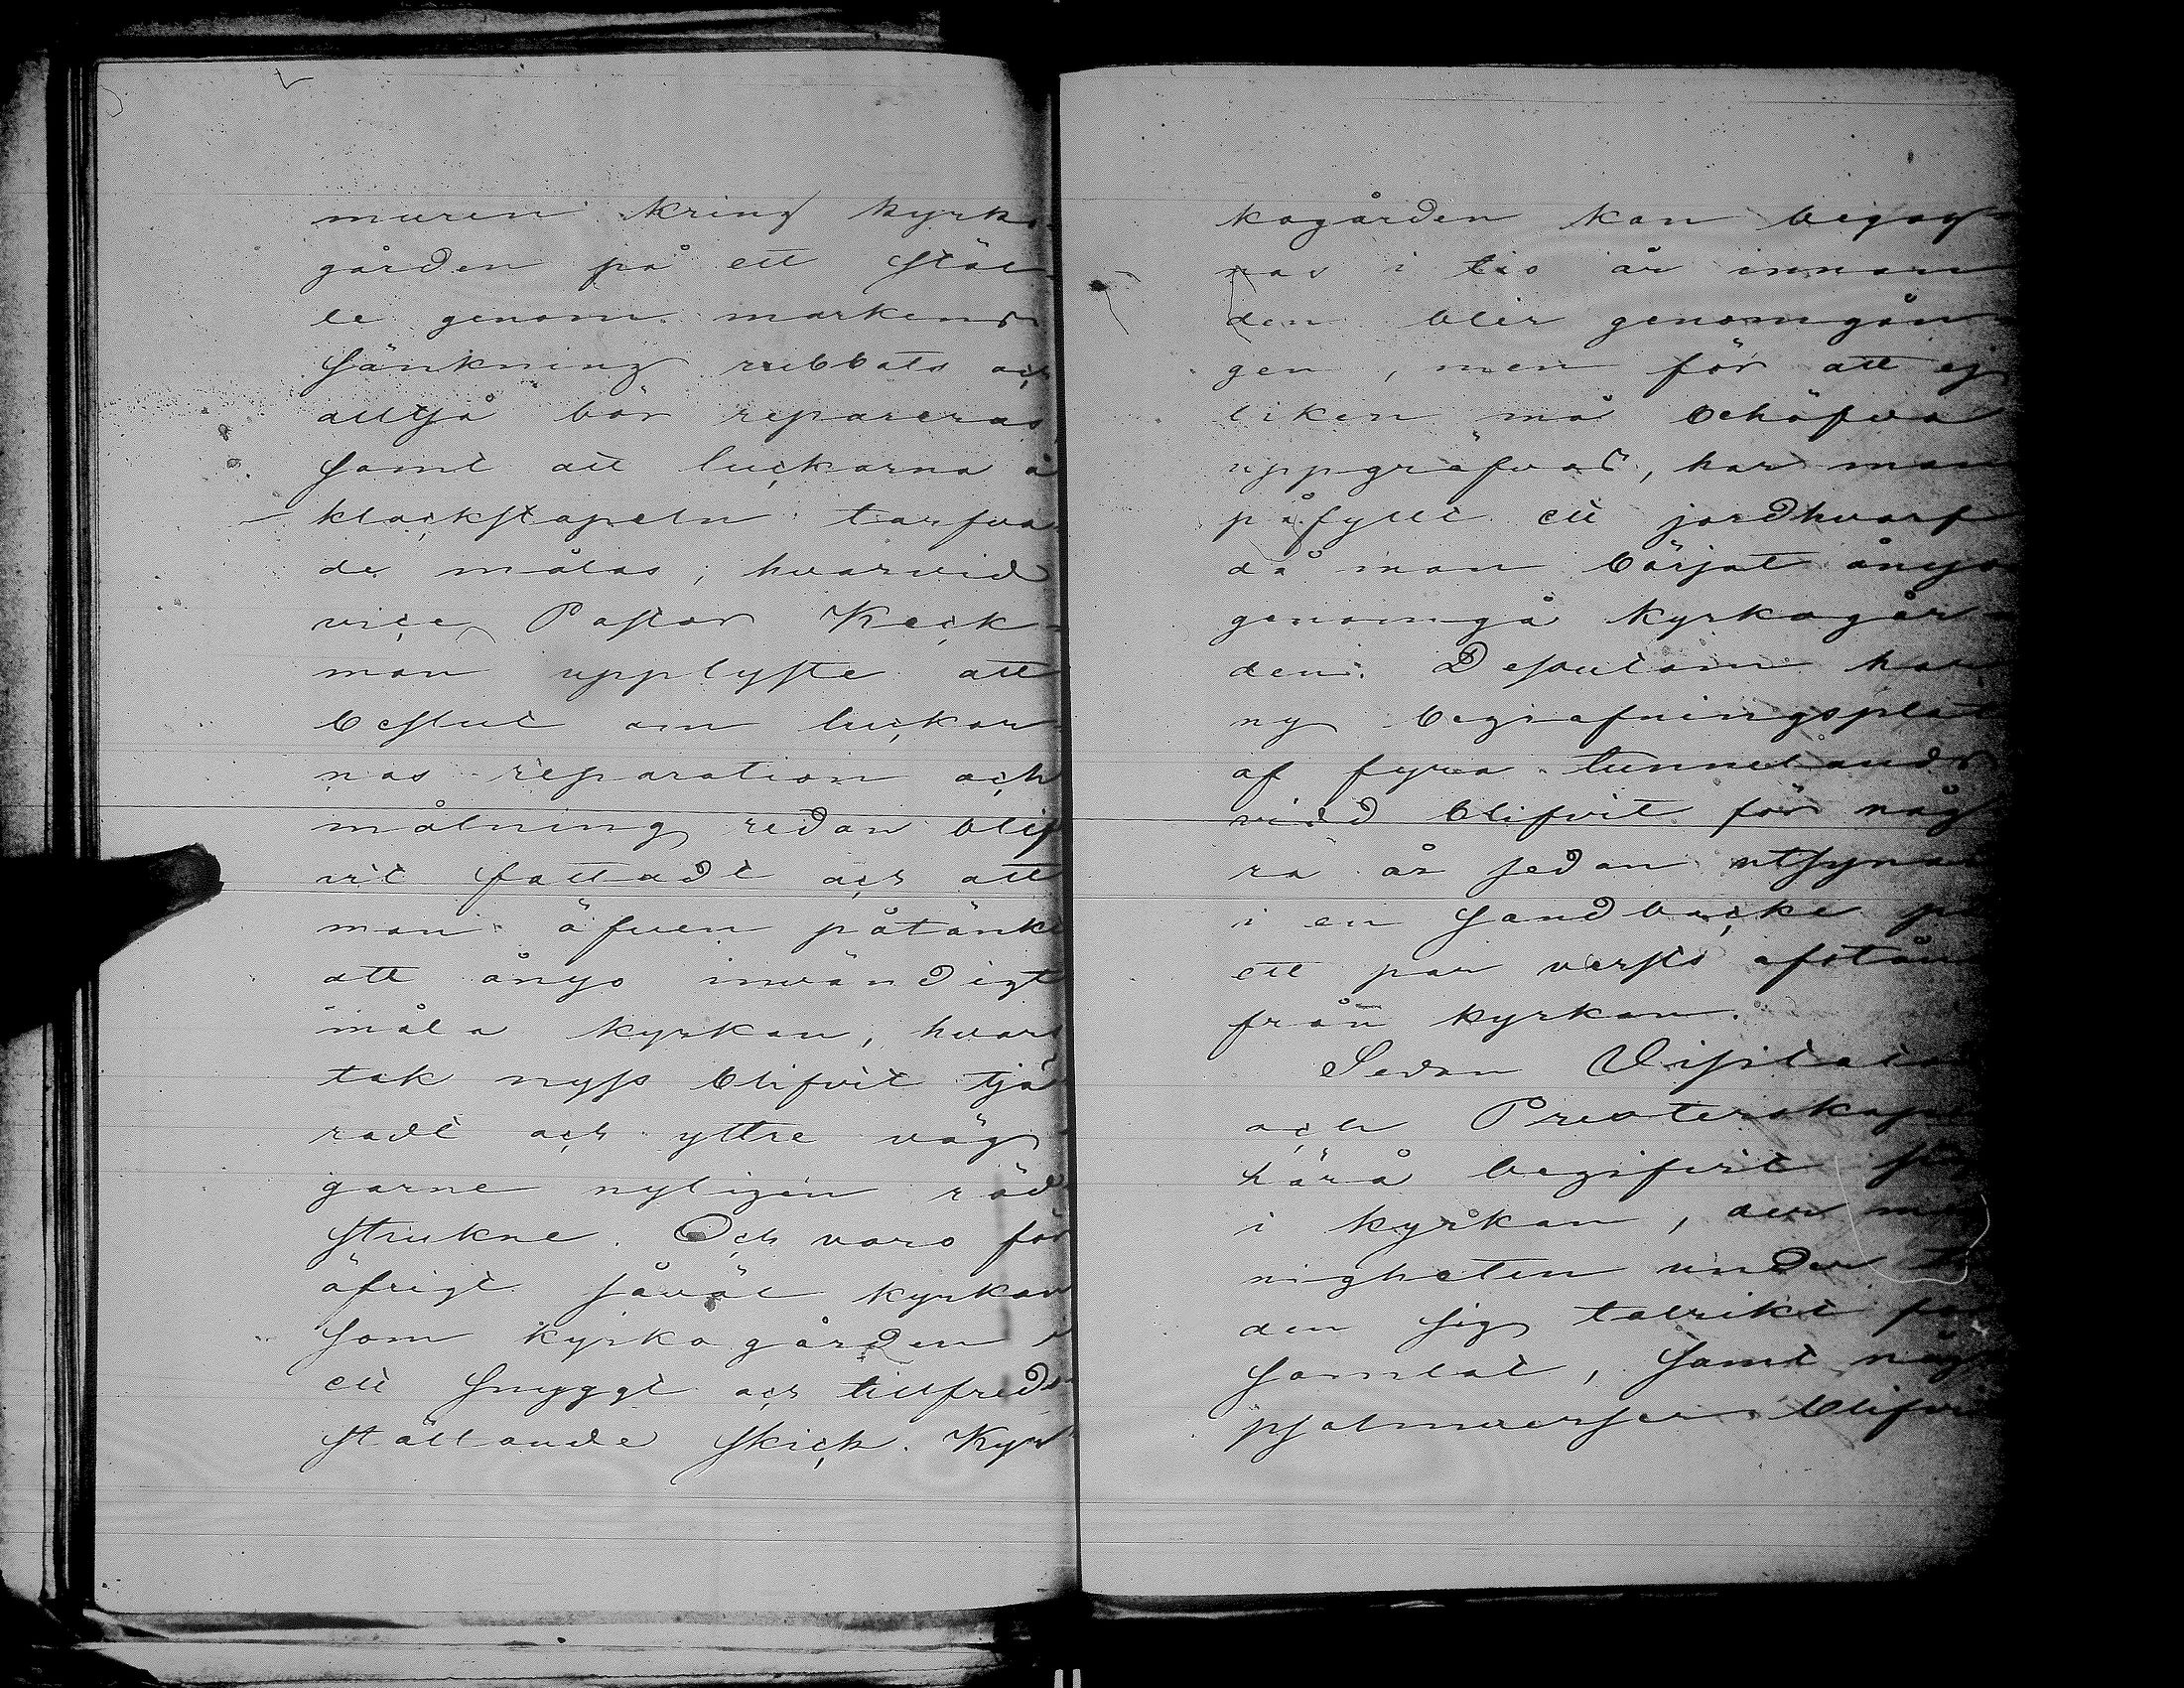 muren kring kyrko-
gården på ett stäl-
le genom markens
sänkning rubbats och
alltså bör repareras,
samt att luckorna å
klockstapeln tarfva-
de målas; hvarvid
vice Pastor Keck-
man upplyste att
beslut om luckor-
nas reparation och
målning redan blif
vit fattadt och att
man äfven påtänkt
att ånyo invändigt
måla kyrkan, hvars
tak nyss blifvit tjä
radt och yttre väg-
garne nyligen röd
strukne. Och voro för
öfrigt såväl kyrkan
som kyrkogården i
ett snyggt och tillfreds-
ställande skick. Kyr
kogården kan begag-
nas i tio år innan
den blir genomgån-
gen, men för att ej
liken må behöfva
uppgräfvas, har man
påfyllt ett jordhvarf
då man börjat ånyo
genomgå kyrkogår-
den. Dessutom har
ny begrafningsplats
af fyra tunnelands
vidd blifvit för någ
ra år sedan utsynad
i en sandbacke på
ett par versts afstånd
från kyrkan.
Sedan Visitator
och Presterskapet
härå begifvit sig
i kyrkan, der me
nigheten under
den sig talrikt för
samlat, samt någ
psalmverser blifvit